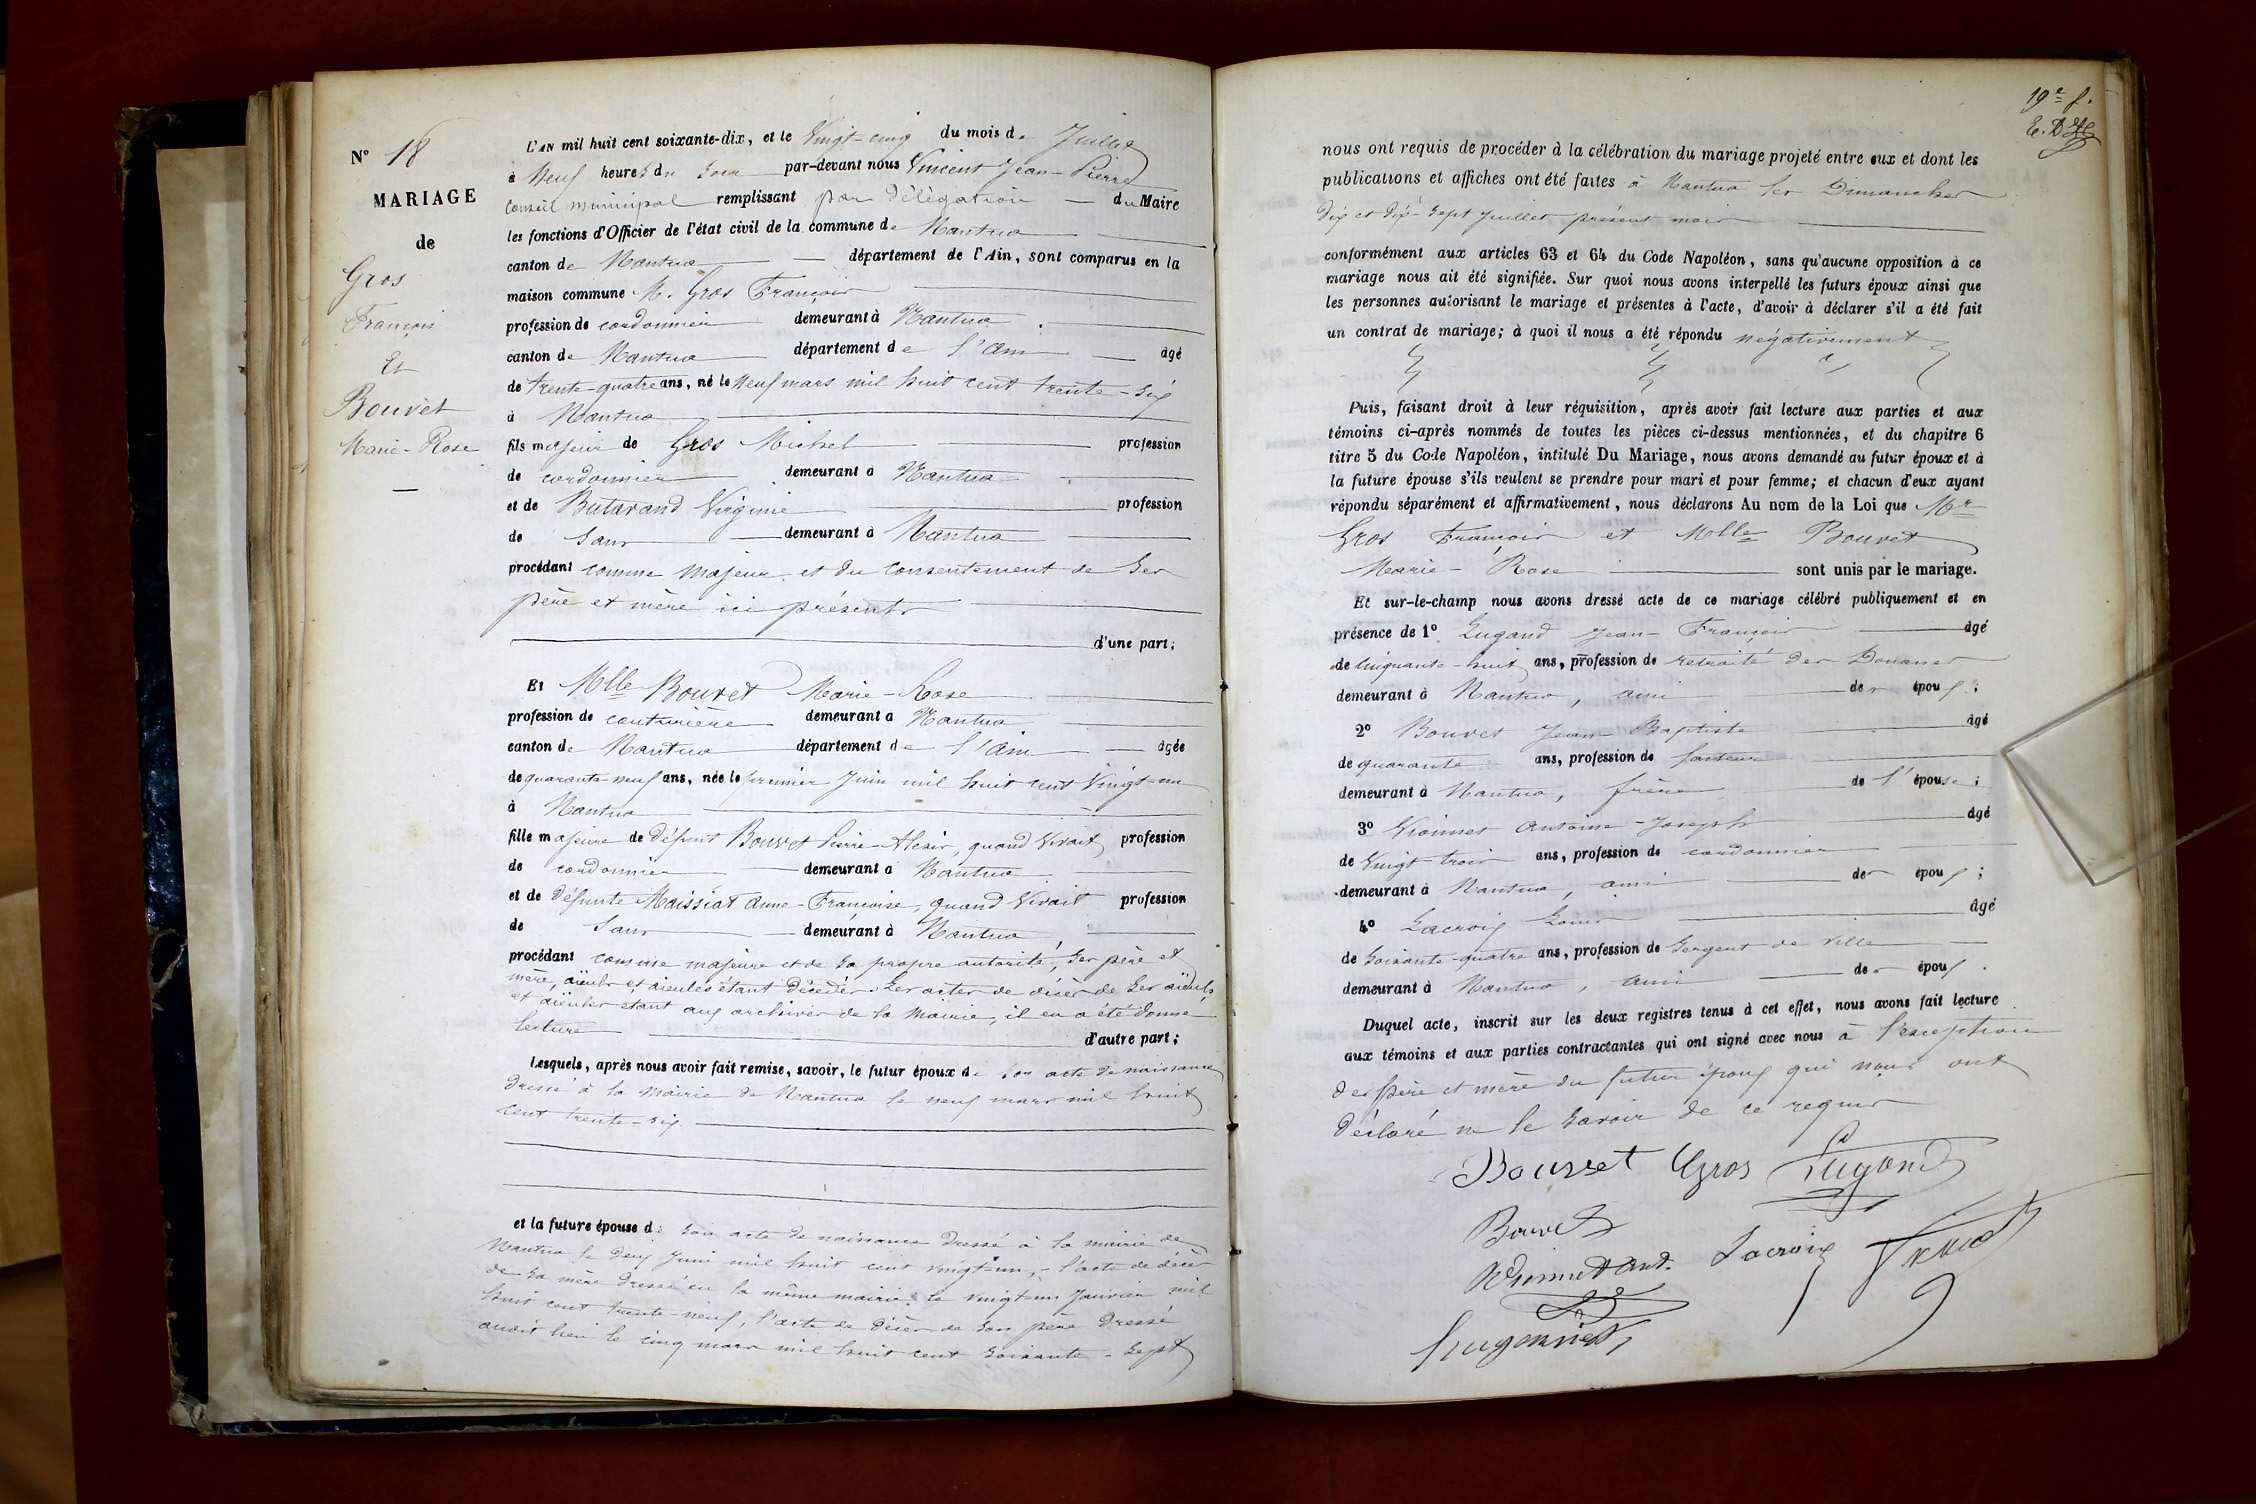 N° 18
MARIAGE
de
Gros
François
Et
Bouvet
Marie-Rose
L'AN mil huit cent soixante-dix, et le Vingt-cinq du mois de Juillet
à Neuf heures du Soir par-devant nous Vincent Jean-Pierre
Conseil municipal remplissant par délégation du Maire
les fonctions d'Officier de l'état civil de la commune de Nantua
canton de Nantua département de l'Ain, sont comparus en la
maison commune M. Gros François
profession de cordonnier demeurant à Nantua
canton de Nantua département de l'Ain âgé
de trente-quatre ans, né le Neuf mars mil huit cent trente-six
à Nantua
fils majeur de Gros Michel profession
de cordonnier demeurant à Nantua
et de Butavand Virginie profession
de Sans demeurant à Nantua
procédant comme majeur et du consentement de Ses
père et mère ici présents
d'une part;
Et Mlle Bouvet Marie-Rose
profession de couturière demeurant à Nantua
canton de Nantua département de l'Ain âgée
de quarante-neuf ans, née le premier Juin mil huit cent Vingt-un
à Nantua
fille majeure de défunt Bouvet Pierre-Alexis, quand Vivait profession
de cordonnier demeurant à Nantua
et de défunte Maissiat Anne-Françoise, quand Vivait profession
de Sans demeurant à Nantua
procédant comme majeure et de sa propre autorité, Ses père et
mère, aïeuls et aïeules étant décédés. Les actes de décès de Ses aïeuls
et aïeules étant aux archives de la Mairie, il en a été donné
lecture d'autre part;
Lesquels, après nous avoir fait remise, savoir, le futur époux de Son acte de naissance
dressé à la Mairie de Nantua le neuf mars mil huit
cent trente-six.
et la future épouse de Son acte de naissance dressé à la mairie de
Nantua le deux Juin mil huit cent vingt-un, l'acte de décès
de sa mère dressé en la même mairie le vingt-un Janvier mil
huit cent trente-neuf, l'acte de décès de Son père dressé
audit lieu le cinq mars mil huit cent soixante-sept
19e f.
nous ont requis de procéder à la célébration du mariage projeté entre eux et dont les
publications et affiches ont été faites à Nantua les Dimanches
dix et dix-sept Juillet présent mois
conformément aux articles 63 et 64 du Code Napoléon, sans qu'aucune opposition à ce
mariage nous ait été signifiée. Sur quoi nous avons interpellé les futurs époux ainsi que
les personnes autorisant le mariage et présentes à l'acte, d'avoir à déclarer s'il a été fait
un contrat de mariage; à quoi il nous a été répondu négativement
Puis, faisant droit à leur réquisition, après avoir fait lecture aux parties et aux
témoins ci-après nommés de toutes les pièces ci-dessus mentionnées, et du chapitre 6
titre 5 du Code Napoléon, intitulé Du Mariage, nous avons demandé au futur époux et à
la future épouse s'ils veulent se prendre pour mari et pour femme; et chacun d'eux ayant
répondu séparément et affirmativement, nous déclarons Au nom de la Loi que Mr
Gros François et Mlle Bouvet
Marie-Rose sont unis par le mariage.
Et sur-le-champ nous avons dressé acte de ce mariage célébré publiquement et en
présence de 1° Lugand Jean-François âgé
de Cinquante-huit ans, profession de retraité des Douanes
demeurant à Nantua, ami des époux;
2° Bouvet Jean-Baptiste âgé
de quarante ans, profession de facteur
demeurant à Nantua, frère de l'épouse;
3° Vionnet Antoine-Joseph âgé
de Vingt-trois ans, profession de cordonnier
demeurant à Nantua, ami des époux;
4° Lacroix Louis âgé
de Soixante-quatre ans, profession de Sergent de Ville
demeurant à Nantua, ami des époux.
Duquel acte, inscrit sur les deux registres tenus à cet effet, nous avons fait lecture
aux témoins et aux parties contractantes qui ont signé avec nous à l'exception
des père et mère du futur époux qui nous ont
déclaré ne le savoir de ce requis
Bouvet Gros Lugand
Bouvet
Vionnet ant. Lacroix
Hugonnet